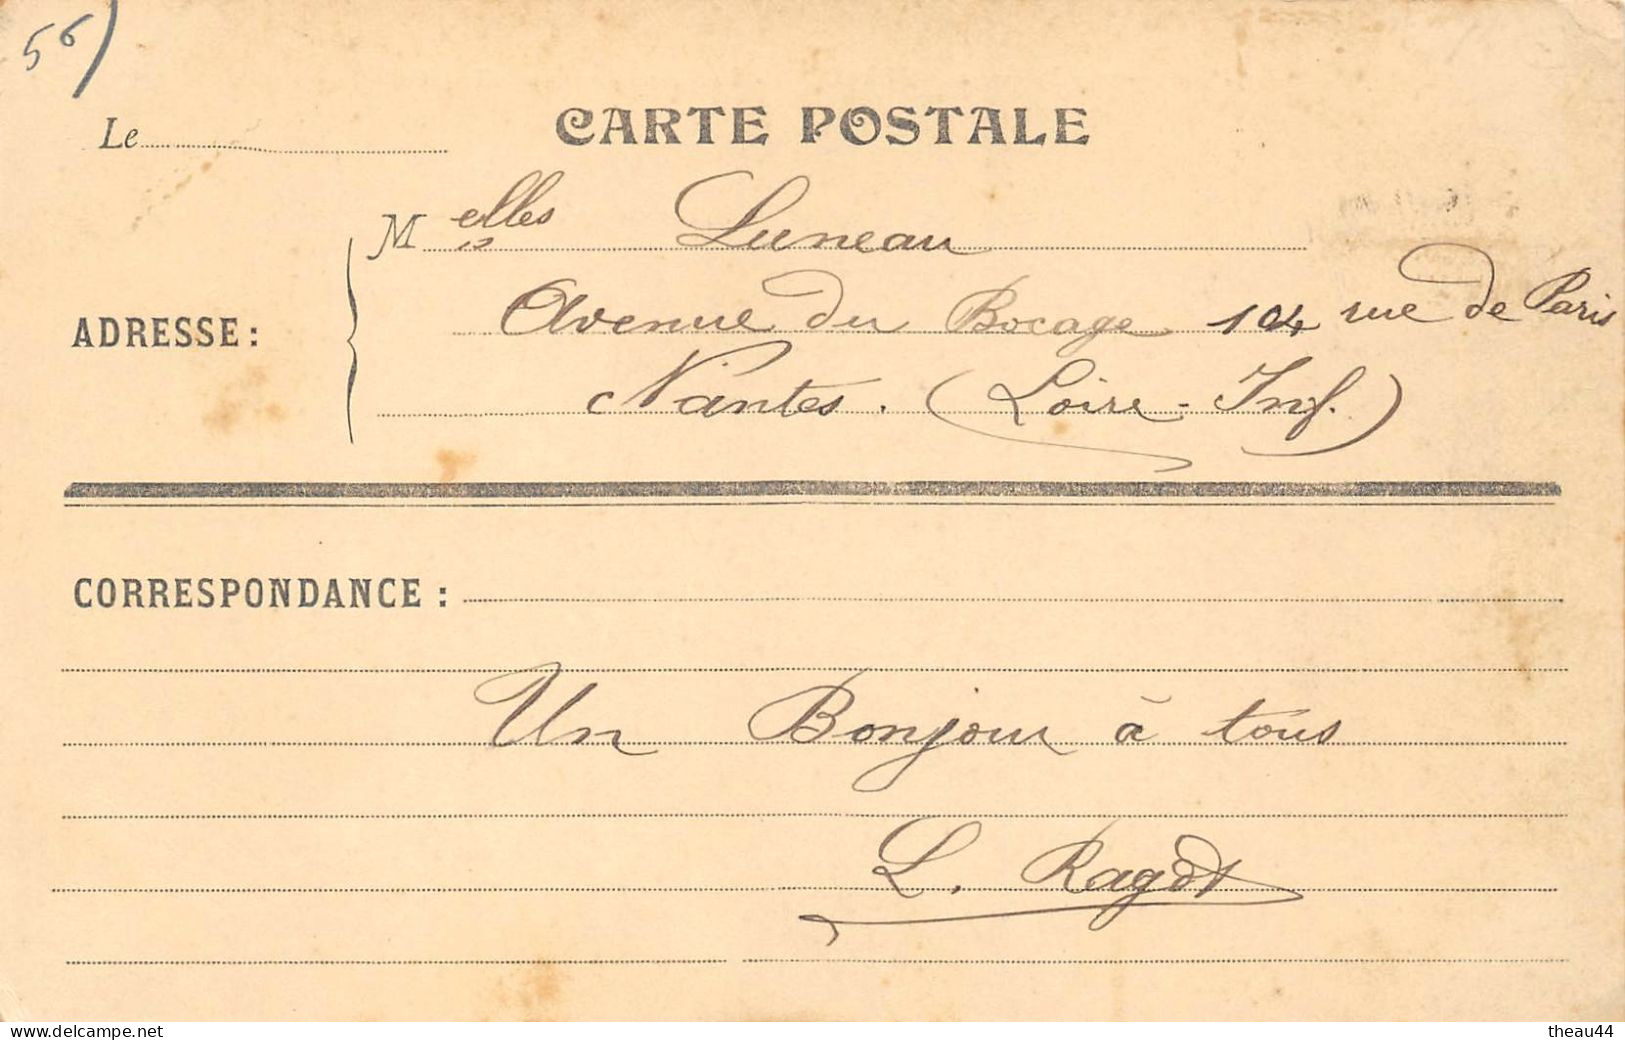 56)
Le
CARTE POSTALE
Melles Luneau
ADRESSE :
Avenue du Bocage 104 rue de Paris
Nantes. (Loire-Inf.)
CORRESPONDANCE :
Un Bonjour à tous
L. Ragot
www.delcampe.net
theau44